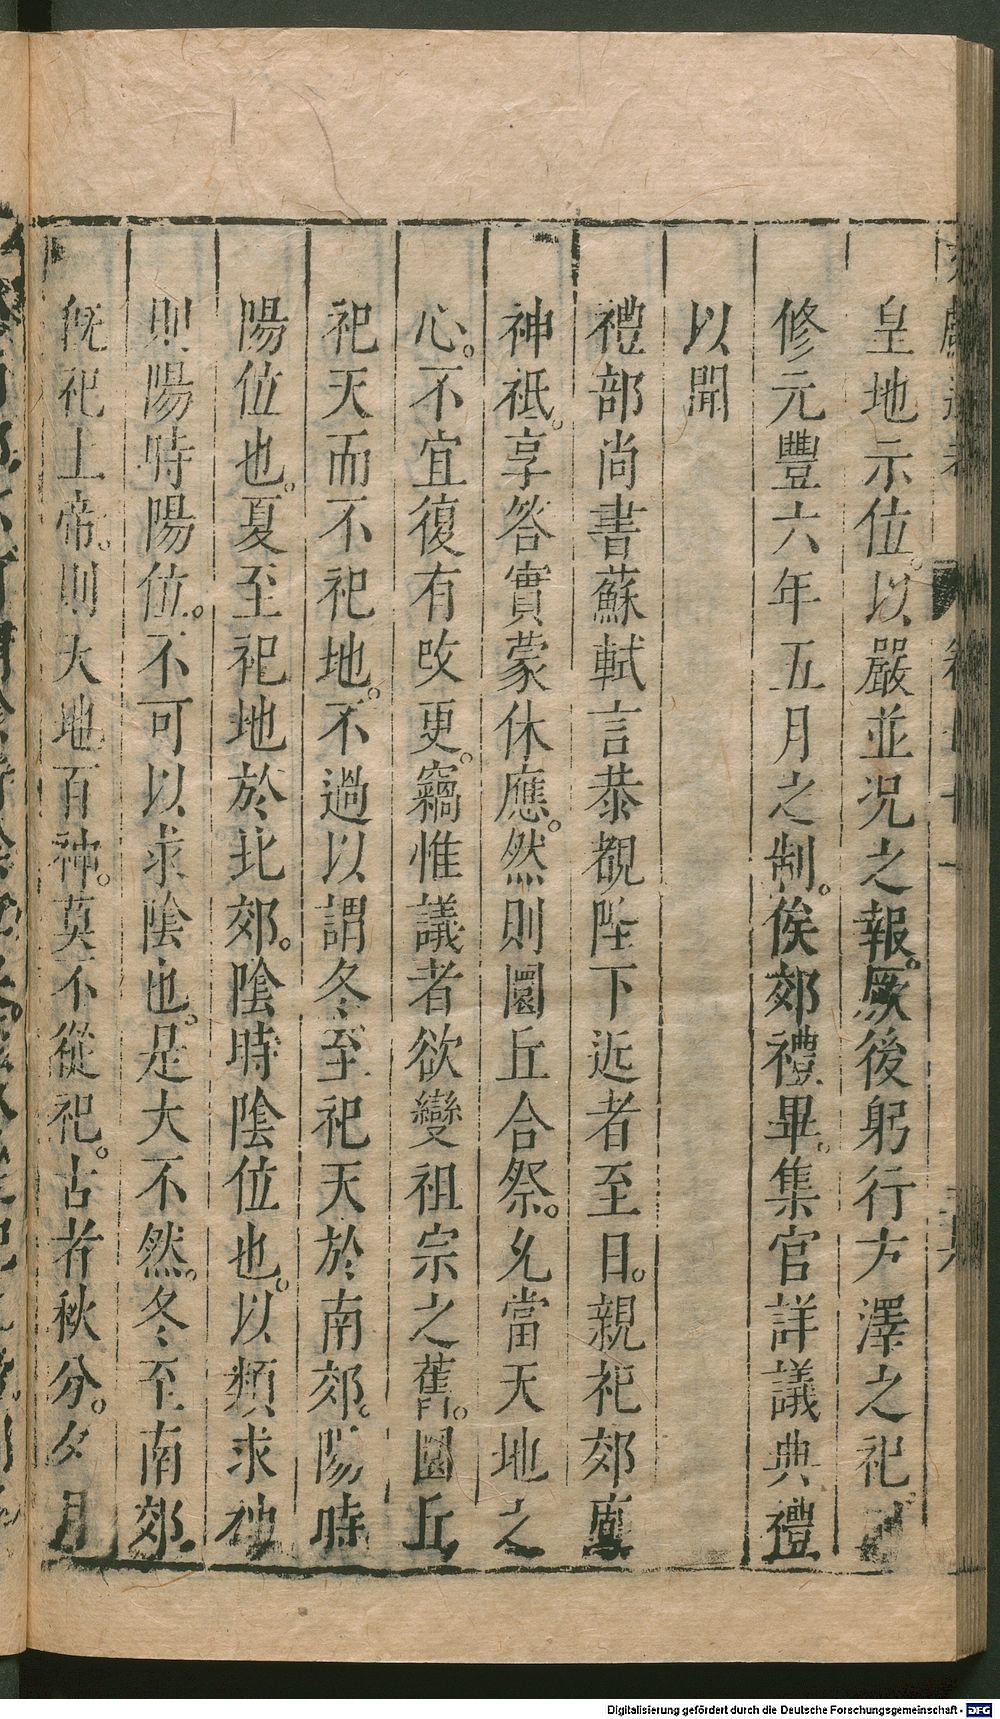 皇地示位。以嚴並况之報。厥後躬行方澤之祀。
修元豐六年五月之制。俟郊禮畢。集官詳議典禮
以聞
禮部尚書蘇軾言恭覩陛下近者至日。親祀郊廟
神祇。享答實蒙休應。然則圜丘合祭。允當天地之
心。不宜復有改更。竊惟議者欲變祖宗之舊。圜丘
祀天而不祀地。不過以謂冬至祀天於南郊。陽時
陽位也。夏至祀地於北郊。陰時陰位也。以類求神
則陽時陽位。不可以求陰也。是大不然。冬至南郊
既祀上帝。則天地百神。莫不從祀。古者秋分。夕月
Digitalisierung gefördert durch die Deutsche Forschungsgemeinschaft - DFG